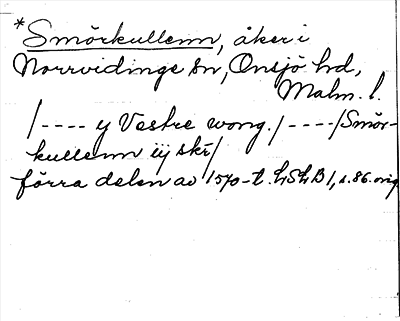 *Smörkullenn, åker i
Norrvidinge sn, Onsjö hd,
Malm. l.
/---- y Vestre wong. /----/ Smör-
kullenn iij skr/
förra delen av 1570-t. LSLB 1, s. 86. orig.